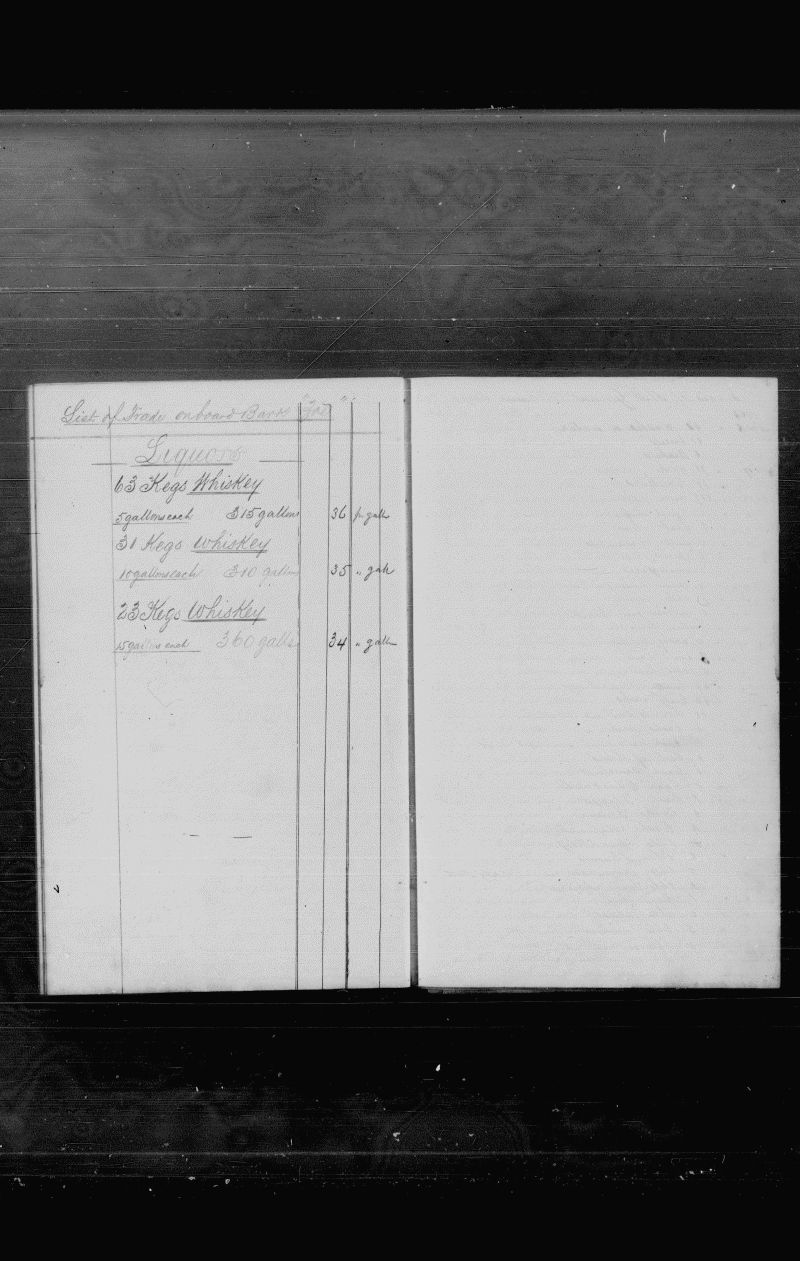 List of Trade onboard Bark
Liquors
63 Kegs Whiskey
5 gallons each 315 gallons 36 pr gall
31 Kegs Whiskey
10 gallons each 310 gallons 35 " gall
23 Kegs Whiskey
15 gallons each 360 galls 34 " gall